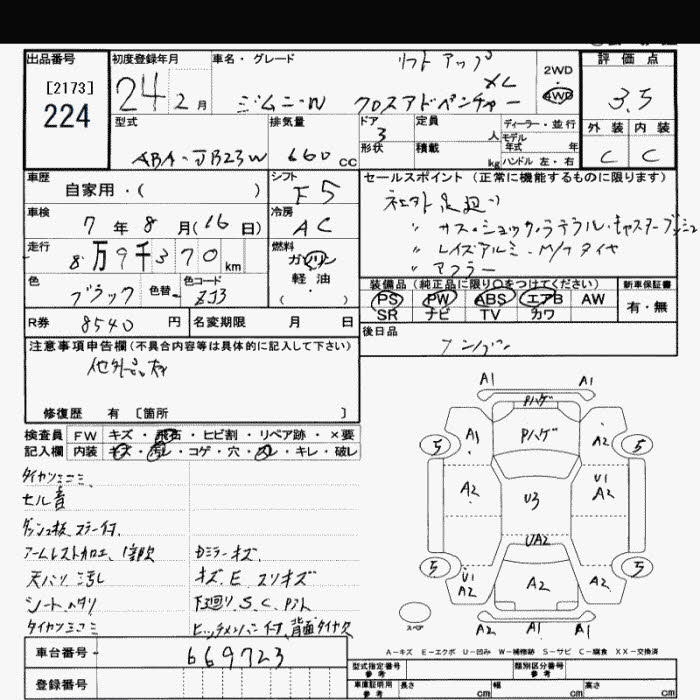 出品番号
[2173]
224
初度登録年月
24 2月
車名・グレード
リフトアップ
XL
ジムニーW クロスアドベンチャー
2WD
4WD
評価点
3.5
外装 内装
C C
型式
ABA-JB23W
排気量
660 CC
ドア
3
形状
定員 人
積載 kg
ディーラー・並行
モデル
年式 年
ハンドル 左・右
車歴
自家用・( )
シフト
F5
車検
7年8月(16日)
冷房
AC
走行
8万9千370km
燃料
ガソリン
軽油
( )
色
ブラック
色替
色コード
ZJ3
R券 8540円
名変期限 月 日
セールスポイント(正常に機能するものに限ります)
社外足廻り
〃 サス・ショック・ラテラル・キャスターブッシュ
〃 レイズアルミ・M/Tタイヤ
〃 マフラー
装備品(純正品に限り○をつけてください)
PS PW ABS エアB AW
SR ナビ TV カワ
新車保証書
有・無
後日品
注意事項申告欄(不具合内容等は具体的に記入して下さい)
修復歴 有 [箇所 ]
検査員 FW キズ・飛石・ヒビ割・リペア跡・×要
記入欄 内装 キズ・汚レ・コゲ・穴・スレ・キレ・破レ
セル音
アームレスト加工、
天バリ汚レ
シートヘタリ
Cミラーキズ
キズ、E、スリキズ
下廻り、S、C、
ヒッチメンバー付、背面タイヤ欠
A1 A1
Pハゲ
5 A1 Pハゲ A2 5
A2 U3 U1
A2
UA2
5 U1
A2 A2 A2 5
スペア
A2 A1 A1
A-キズ E-エクボ U-凹み W-補修跡 S-サビ C-腐食 XX-交換済
車台番号 669723
登録番号
型式指定番号
参考
類別区分番号
参考
車庫証明用
参考
長さ cm 幅 cm 高さ cm